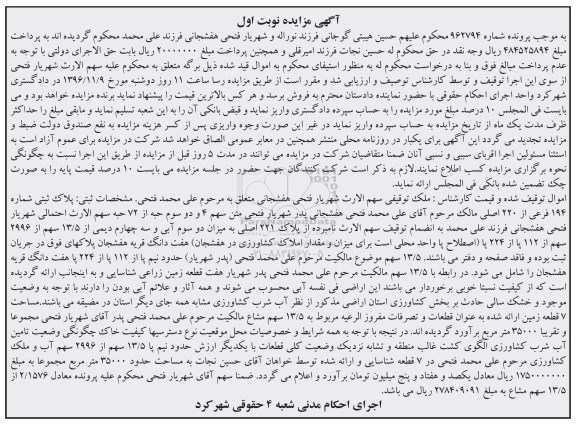 آگهی مزایده نوبت اول
به موجب پرونده شماره ۹۶۲۷۹۴ محکوم علیهم حسین هیبتی گوجانی فرزند نوراله و شهریار فتحی هفشجانی فرزند علی محمد محکوم گردیده اند به پرداخت
مبلغ ۴۸۴۵۲۵۸۹۴ ریال وجه نقد در حق محکوم له حسین نجات فرزند امیرقلی و همچنین پرداخت مبلغ ۲۰۰۰۰۰۰۰ ریال بابت حق الاجرای دولتی با توجه به
عدم پرداخت مبالغ فوق و بنا به درخواست محکوم له به منظور استیفای محکوم به اموال قید شده ذیل برگه متعلق به محکوم علیه سهم الارث شهریار فتحی
از سوی این اجرا توقیف و توسط کارشناس توصیف و ارزیابی شد و مقرر است از طریق مزایده رسا ساعت ۱۱ روز دوشنبه مورخ ۱۳۹۶/۱۱/۹ در دادگستری
شهرکرد واحد اجرای احکام حقوقی با حضور نماینده دادستان محترم به فروش برسد و هر کس بالاترین قیمت را پیشنهاد نماید برنده مزایده خواهد بود و می
بایست فی المجلس ۱۰ درصد مبلغ مورد مزایده را به حساب سپرده دادگستری واریز نماید و قبض بانکی آن را به این شعبه تسلیم نماید و مابقی مبلغ را حداکثر
ظرف مدت یک ماه از تاریخ مزایده به حساب سپرده واریز نماید در غیر این صورت وجوه واریزی پس از کسر هزینه مزایده به نفع صندوق دولت ضبط و
مزایده تجدید می گردد این آگهی برای یکبار در روزنامه محلی منتشر همچنین در معابر عمومی الصاق خواهد شد شرکت در مزایده برای عموم آزاد است به
استثنا مسئولین اجرا اقربای سببی و نسبی آنان ضمنا متقاضیان شرکت در مزایده می توانند در مدت ۵ روز قبل از مزایده از طریق این اجرا نسبت به چگونگی
نحوه برگزاری مزایده کسب اطلاع نمایند.لازم به ذکر است شرکت کنندگان جهت حضور در جلسه مزایده می بایست ۱۰ درصد قیمت پایه را به صورت
چک تضمین شده بانکی فی المجلس ارائه نماید.
اموال توقیف شده و قیمت کارشناس : ملک توقیفی سهم الارث شهریار فتحی هفشجانی متعلق به مرحوم علی محمد فتحی. مشخصات ثبتی: پلاک ثبتی شماره
۱۹۴ فرعی از ۲۲۰ اصلی مالک مرحوم آقای علی محمد فتحی هفشجانی پدر شهریار فتحی متن سهم ۴ و دو سوم حبه از ۷۲ حبه سهم الارث احتمالی شهریار
فتحی هفشجانی فرزند علی محمد به انضمام توقیف سهم الارث نامبرده از پلاک ۲۲۱ اصلی به میزان دو سوم آبی و سه چهارم دیمی از ۱۳/۵ سهم از ۲۹۹۶
سهم از ۱۱۲ پا از ۲۲۴ پا (اصطلاح پا واحد محلی است برای میزان و مقدار املاک کشاورزی در هفشجان) هفت دانگ قریه هفشجان پلاکهای فوق در جریان
ثبت بوده و فاقد صفحه و دفتر می باشند. ۱۳/۵ سهم موضوع مالکیت مرحوم علی محمد فتحی (پدر شهریار) حدود نیم پا از ۱۱۲ پا از ۲۲۴ پا هفت دانگ قریه
هفشجان را شامل می شود. در رابطه با ۱۳/۵ سهم مالکیت مرحوم علی محمد فتحی پدر شهریار هفت قطعه زمین زراعی شناسایی و به اینجانب ارائه گردیده
است که از کیفیت نسبتا خوبی برخوردار می باشند این اراضی فی نفسه آبی محسوب می شوند و همه آثار و علائم آبی بودن را دارند با توجه به وضعیت
موجود و خشک سالی حادث بر بخش کشاورزی استان اراضی مذکور از نظر آب شرب کشاورزی مشابه همه جای دیگر استان در مضیقه می باشند.مساحت
۷ قطعه زمین ارائه شده به عنوان قطعات و تصرفات مفروز الرعیه مربوط به ۱۳/۵ سهم مشاع مالکیت مرحوم علی محمد فتحی پدر آقای شهریار فتحی مجموعا
و تقریبا ۳۵۰۰۰ متر مربع برآورد گردیده اند. در نتیجه با توجه به همه شرایط و خصوصیات محل موقعیت نوع دسترسیها کیفیت خاک چگونگی وضعیت تامین
آب شرب کشاورزی الگوی کشت غالب منطقه و تشابه نزدیک وضعیت کلی قطعات با یکدیگر ارزش حدود نیم پا ۱۳/۵ از ۲۹۹۶ سهم آب و ملک
کشاورزی مرحوم علی محمد فتحی در ۷ قطعه شناسایی و ارائه شده توسط خواهان آقای حسین نجات به مساحت حدود ۳۵۰۰۰ متر مربع مجموعا به مبلغ
۱۷۵۰۰۰۰۰۰۰ ریال معادل یکصد و هفتاد و پنج میلیون تومان برآورد و اعلام می گردد. ضمنا سهم آقای شهریار فتحی محکوم علیه پرونده معادل ۲/۱۵۷۶ از
۱۳/۵ سهم مشاع به مبلغ ۲۷۸۴۰۹۰۹۱ ریال می باشد.
اجرای احکام مدنی شعبه ۴ حقوقی شهرکرد